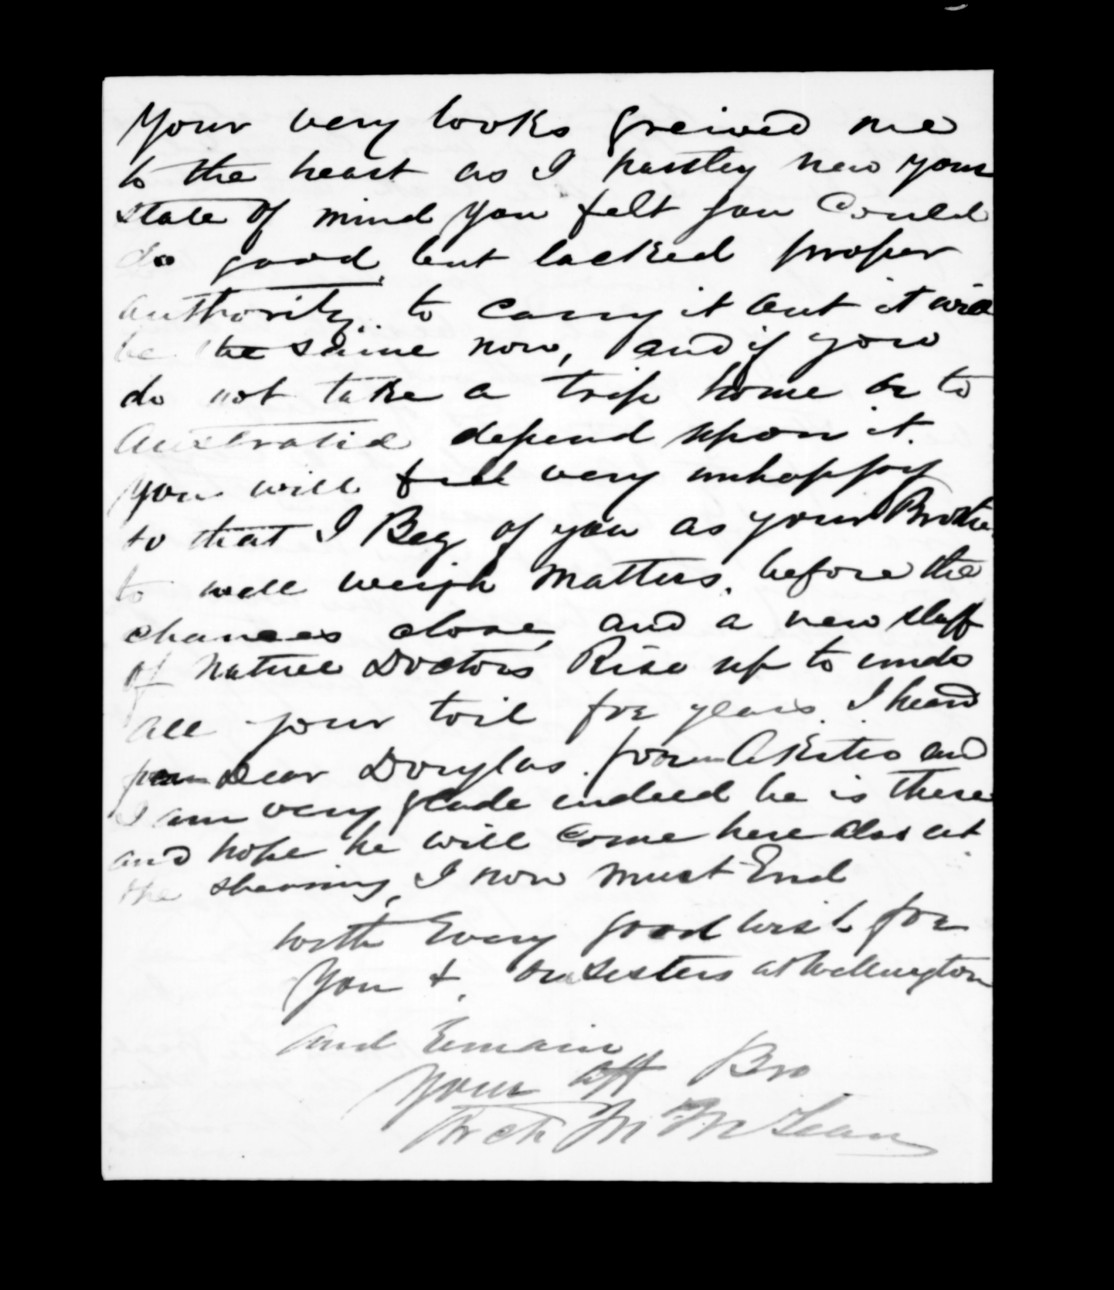 Your very looks greived me
to the heart as I partley new your
state of mind you felt you Could
do good, but lacked proper
authority to carry it out it will
be the same now, and if you
do not take a trip home or to
Australia depend upon it.
you will feel very unhappy
so that I Beg of you as your Brother
to well weigh matters. before the
chances close, and a new staff
of Native Doctors Rise up to undo
all your toil for years. I heard
from Dear Douglas. from Akitio and
I am very glade indeed he is there
and hope he will Come here also at
the shearing, I now must End
with Every good wish for
You & our sisters at Wellington
and Remain
Your aff Bro
Arch McLean